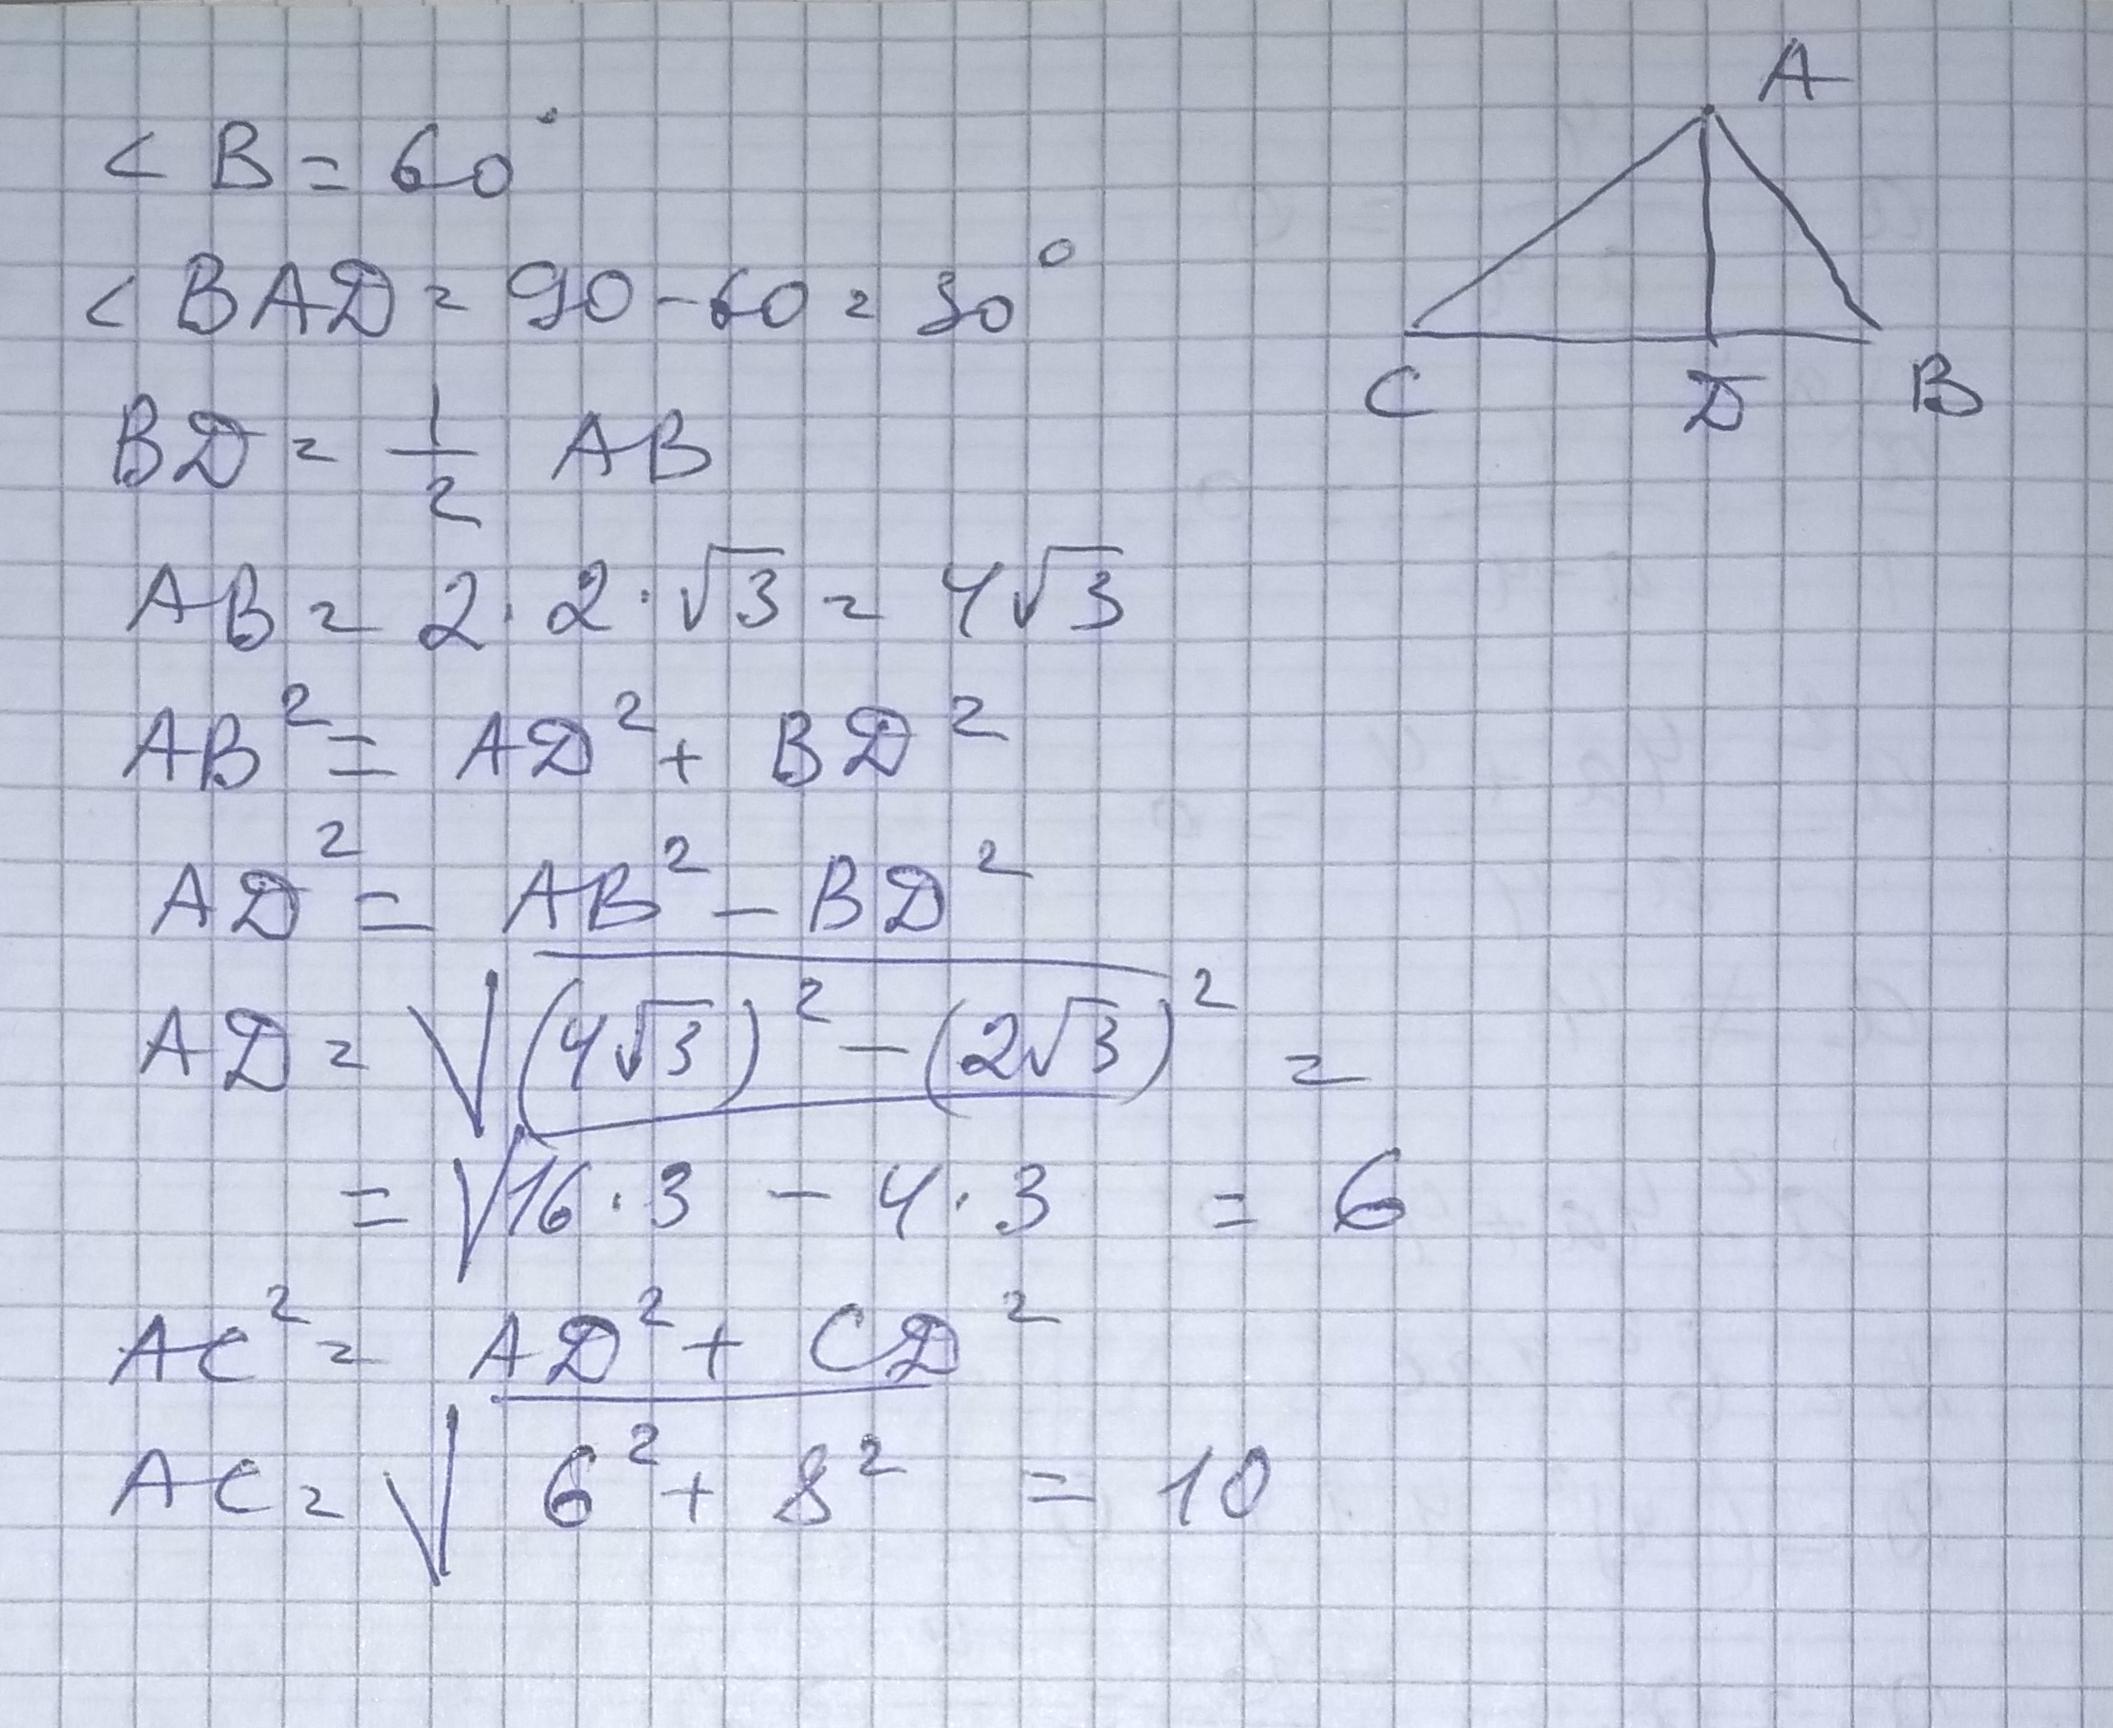 < B = 60°
< BAD = 90 - 60 = 30°
BD = 1/2 AB
AB = 2 · 2 · √3 = 4√3
AB² = AD² + BD²
AD² = AB² - BD²
AD = √((4√3)² - (2√3)²) =
= √(16 · 3 - 4 · 3) = 6
AC² = AD² + CD²
AC = √(6² + 8²) = 10
A
C D B